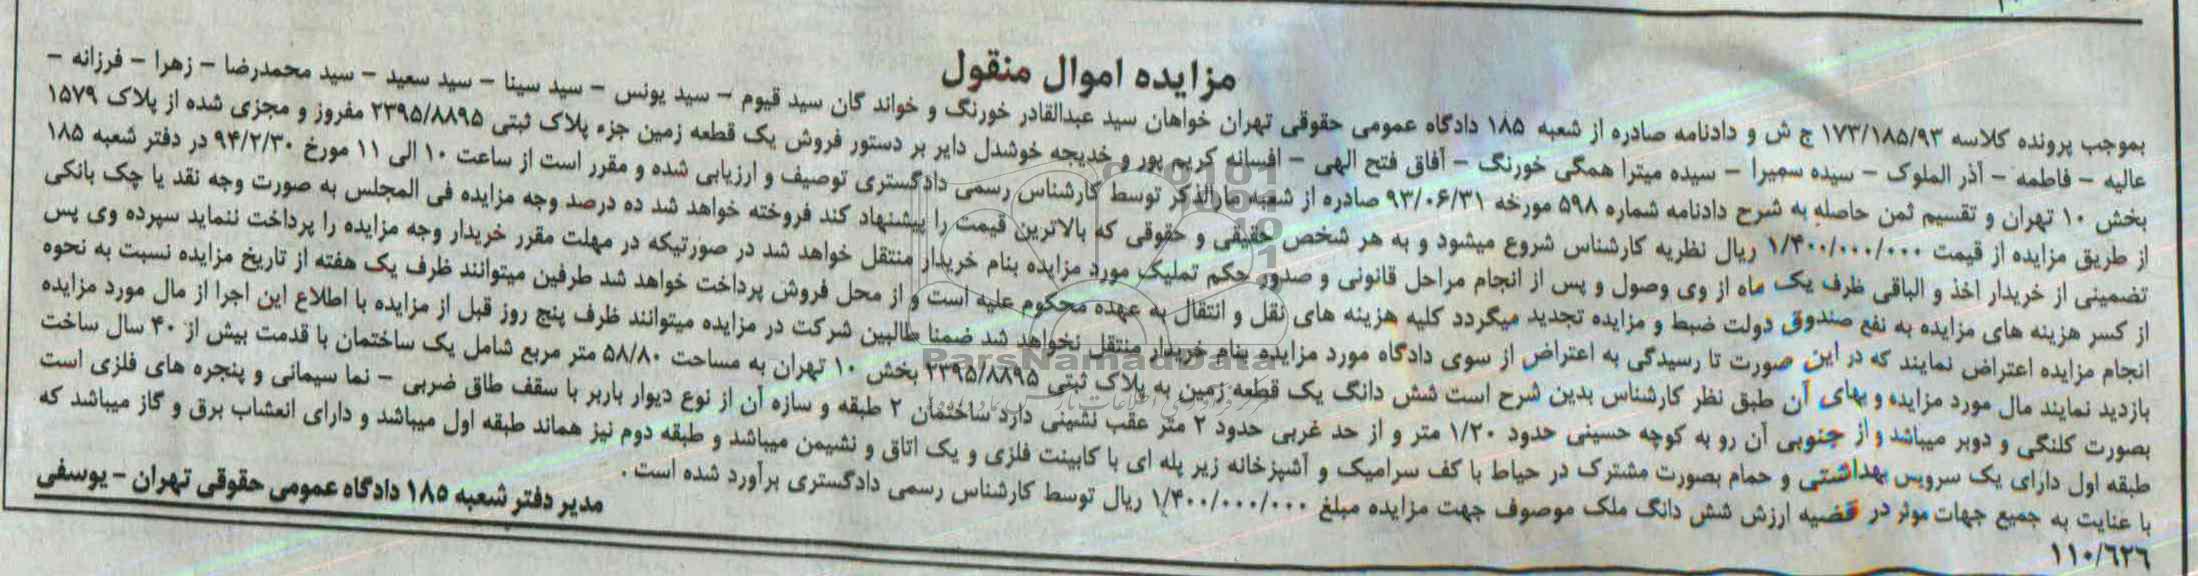 مزایده اموال منقول
بموجب پرونده کلاسه ۱۷۳/۱۸۵/۹۳ ج ش و دادنامه صادره از شعبه ۱۸۵ دادگاه عمومی حقوقی تهران خواهان سید عبدالقادر خورنگ و خواند گان سید قیوم – سید یونس – سید سینا – سید سعید – سید محمدرضا – زهرا – فرزانه –
عالیه – فاطمه – آذر الملوک – سیده سمیرا – سیده میترا همگی خورنگ – آفاق فتح الهی – افسانه کریم پور و خدیجه خوشدل دایر بر دستور فروش یک قطعه زمین جزء پلاک ثبتی ۲۳۹۵/۸۸۹۵ مفروز و مجزی شده از پلاک ۱۵۷۹
بخش ۱۰ تهران و تقسیم ثمن حاصله به شرح دادنامه شماره ۵۹۸ مورخه ۹۳/۰۶/۳۱ صادره از شعبه مارالذکر توسط کارشناس رسمی دادگستری توصیف و ارزیابی شده و مقرر است از ساعت ۱۰ الی ۱۱ مورخ ۹۴/۲/۳۰ در دفتر شعبه ۱۸۵
از طریق مزایده از قیمت ۱/۴۰۰/۰۰۰/۰۰۰ ریال نظریه کارشناس شروع میشود و به هر شخص حقیقی و حقوقی که بالاترین قیمت را پیشنهاد کند فروخته خواهد شد ده درصد وجه مزایده فی المجلس به صورت وجه نقد یا چک بانکی
تضمینی از خریدار اخذ و الباقی ظرف یک ماه از وی وصول و پس از انجام مراحل قانونی و صدور حکم تملیک مورد مزایده بنام خریدار منتقل خواهد شد در صورتیکه در مهلت مقرر خریدار وجه مزایده را پرداخت ننماید سپرده وی پس
از کسر هزینه های مزایده به نفع صندوق دولت ضبط و مزایده تجدید میگردد کلیه هزینه های نقل و انتقال به عهده محکوم علیه است و از محل فروش پرداخت خواهد شد طرفین میتوانند ظرف یک هفته از تاریخ مزایده نسبت به نحوه
انجام مزایده اعتراض نمایند که در این صورت تا رسیدگی به اعتراض از سوی دادگاه مورد مزایده بنام خریدار منتقل نخواهد شد ضمنا طالبین شرکت در مزایده میتوانند ظرف پنج روز قبل از مزایده با اطلاع این اجرا از مال مورد مزایده
بازدید نمایند مال مورد مزایده و بهای آن طبق نظر کارشناس بدین شرح است شش دانگ یک قطعه زمین به پلاک ثبتی ۲۳۹۵/۸۸۹۵ بخش ۱۰ تهران به مساحت ۵۸/۸۰ متر مربع شامل یک ساختمان با قدمت بیش از ۴۰ سال ساخت
بصورت کلنگی و دوبر میباشد و از جنوبی آن رو به کوچه حسینی حدود ۱/۲۰ متر و از حد غربی حدود ۲ متر عقب نشینی دارد ساختمان ۲ طبقه و سازه آن از نوع دیوار باربر با سقف طاق ضربی – نما سیمانی و پنجره های فلزی است
طبقه اول دارای یک سرویس بهداشتی و حمام بصورت مشترک در حیاط با کف سرامیک و آشپزخانه زیر پله ای با کابینت فلزی و یک اتاق و نشیمن میباشد و طبقه دوم نیز هماند طبقه اول میباشد و دارای انعشاب برق و گاز میباشد که
با عنایت به جمیع جهات موثر در قضیه ارزش شش دانگ ملک موصوف جهت مزایده مبلغ ۱/۴۰۰/۰۰۰/۰۰۰ ریال توسط کارشناس رسمی دادگستری برآورد شده است .
مدیر دفتر شعبه ۱۸۵ دادگاه عمومی حقوقی تهران – یوسفی
۱۱۰/۶۲۶
ParsNamadData